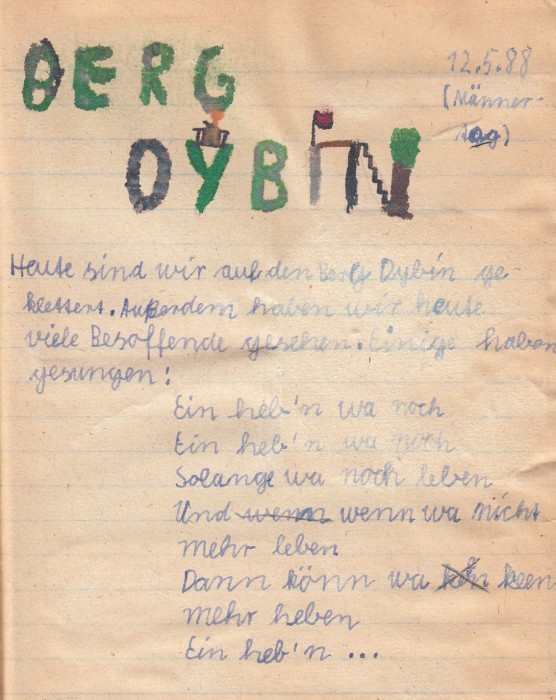 BERG
12.5.88
(Männer-
tag)
OYBIN
Heute sind wir auf den Berg Oybin ge-
klettert. Außerdem haben wir heute
viele Besoffende gesehen. Einige haben
gesungen:
Ein heb'n wa noch
Ein heb'n wa noch
Solange wa noch leben
Und wenn wenn wa nicht
mehr leben
Dann könn wa keen
mehr heben
Ein heb'n ...